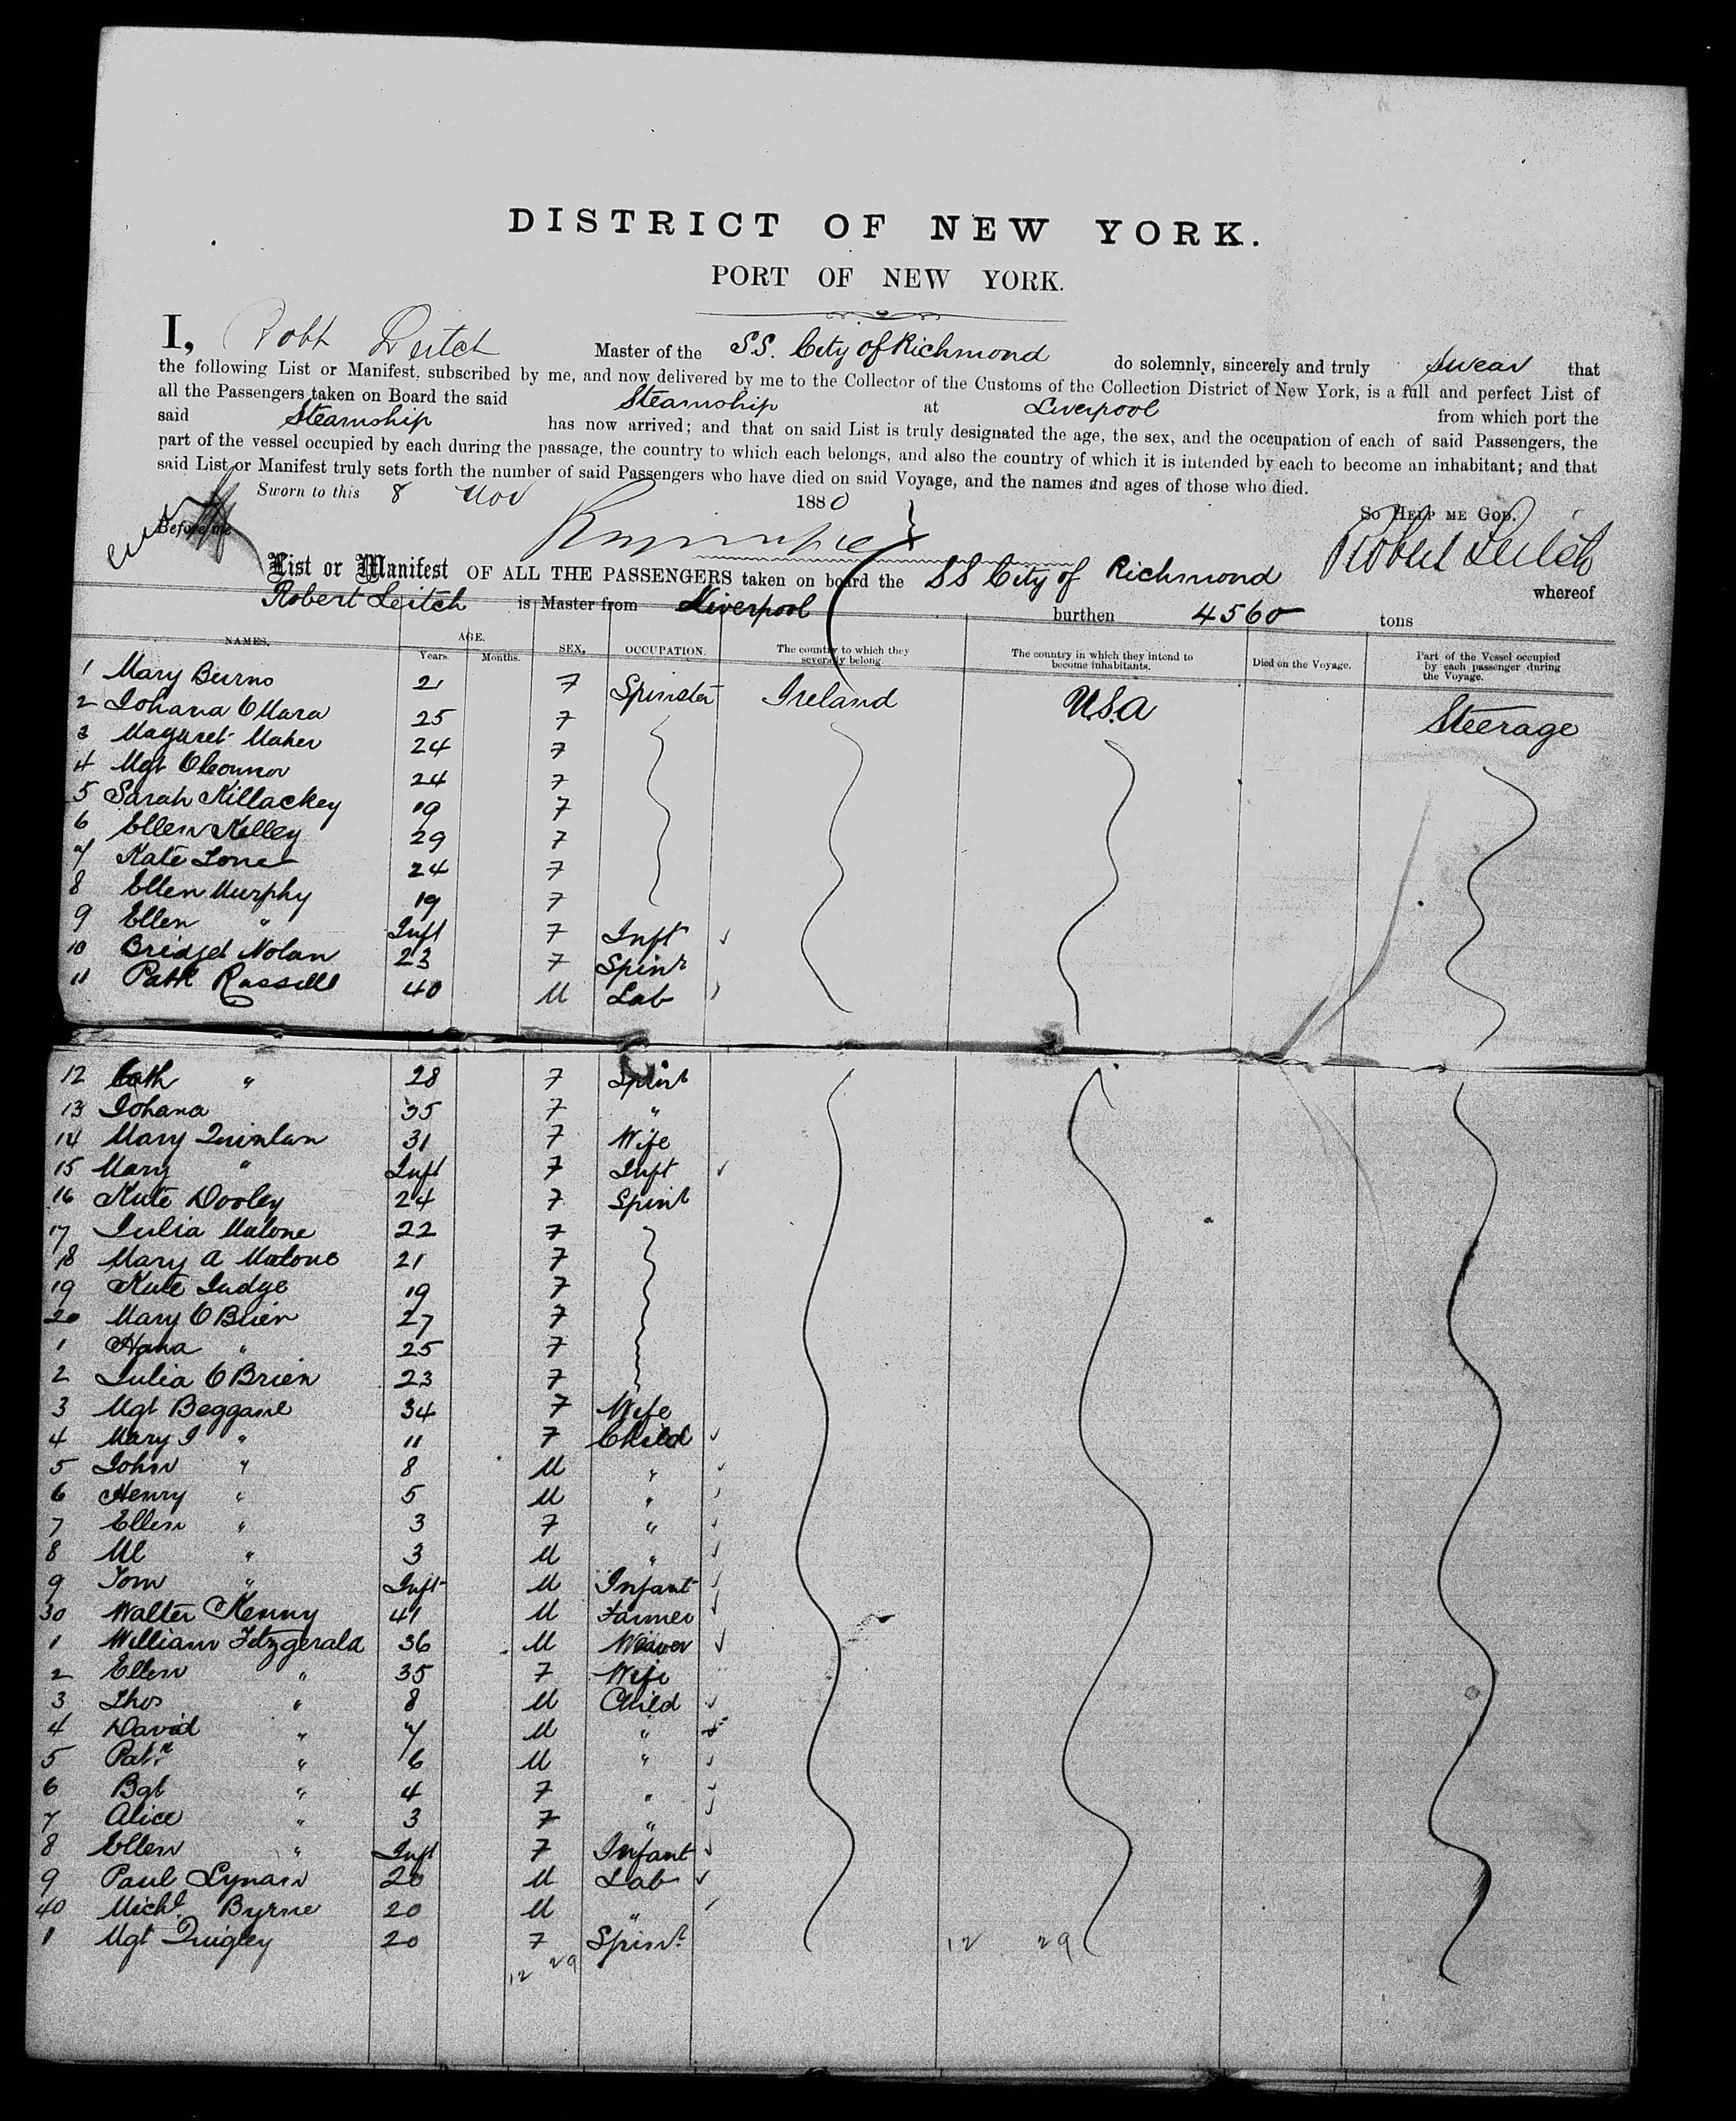 DISTRICT OF NEW YORK.
PORT OF NEW YORK.
I, Robt Leitch Master of the S.S. City of Richmond do solemnly, sincerely and truly Swear that
the following List or Manifest, subscribed by me, and now delivered by me to the Collector of the Customs of the Collection District of New York, is a full and perfect List of
all the Passengers taken on Board the said Steamship at Liverpool from which port the
said Steamship has now arrived; and that on said List is truly designated the age, the sex, and the occupation of each of said Passengers, the
part of the vessel occupied by each during the passage, the country to which each belongs, and also the country of which it is intended by each to become an inhabitant; and that
said List or Manifest truly sets forth the number of said Passengers who have died on said Voyage, and the names and ages of those who died.
Sworn to this 8 Nov 1880 So Help me God.
Before me Robert Leitch
List or Manifest OF ALL THE PASSENGERS taken on board the SS City of Richmond whereof
Robert Leitch is Master from Liverpool burthen 4560 tons
NAMES. AGE. Years. Months. SEX, OCCUPATION. The country to which they severally belong The country in which they intend to become inhabitants. Died on the Voyage. Part of the Vessel occupied by each passenger during the Voyage.
1 Mary Burns 21 F Spinster Ireland U.S.A Steerage
2 Johana O Mara 25 F
3 Magaret Maher 24 F
4 Mgt OConnor 24 F
5 Sarah Killackey 19 F
6 Ellen Kelley 29 F
7 Kate Lone 24 F
8 Ellen Murphy 19 F
9 Ellen " Inft F Inft
10 Bridget Nolan 23 F Spinr
11 Patk Russell 40 M Lab
12 Cath " 28 F Spinr
13 Johana 35 F "
14 Mary Quinlan 31 F Wife
15 Mary " Inft F Inft
16 Kate Dooley 24 F Spinr
17 Julia Malone 22 F
18 Mary A Malone 21 F
19 Kate Judge 19 F
20 Mary O Brien 27 F
1 Hana " 25 F
2 Julia O Brien 23 F
3 Mgt Beggane 34 F Wife
4 Mary J " 11 F Child
5 John " 8 M "
6 Henry " 5 M "
7 Ellen " 3 F "
8 Ml " 3 M "
9 Tom " Inft M Infant
30 Walter Kenny 41 M Farmer
1 William Fitzgerald 36 M Weaver
2 Ellen " 35 F Wife
3 Thos " 8 M Child
4 David " 7 M "
5 Patk " 6 M "
6 Bgt " 4 F "
7 Alice " 3 F "
8 Ellen " Inft F Infant
9 Paul Lynam 20 M Lab
40 Michl Byrne 20 M "
1 Mgt Quigley 20 F Spinr
12 29 12 29